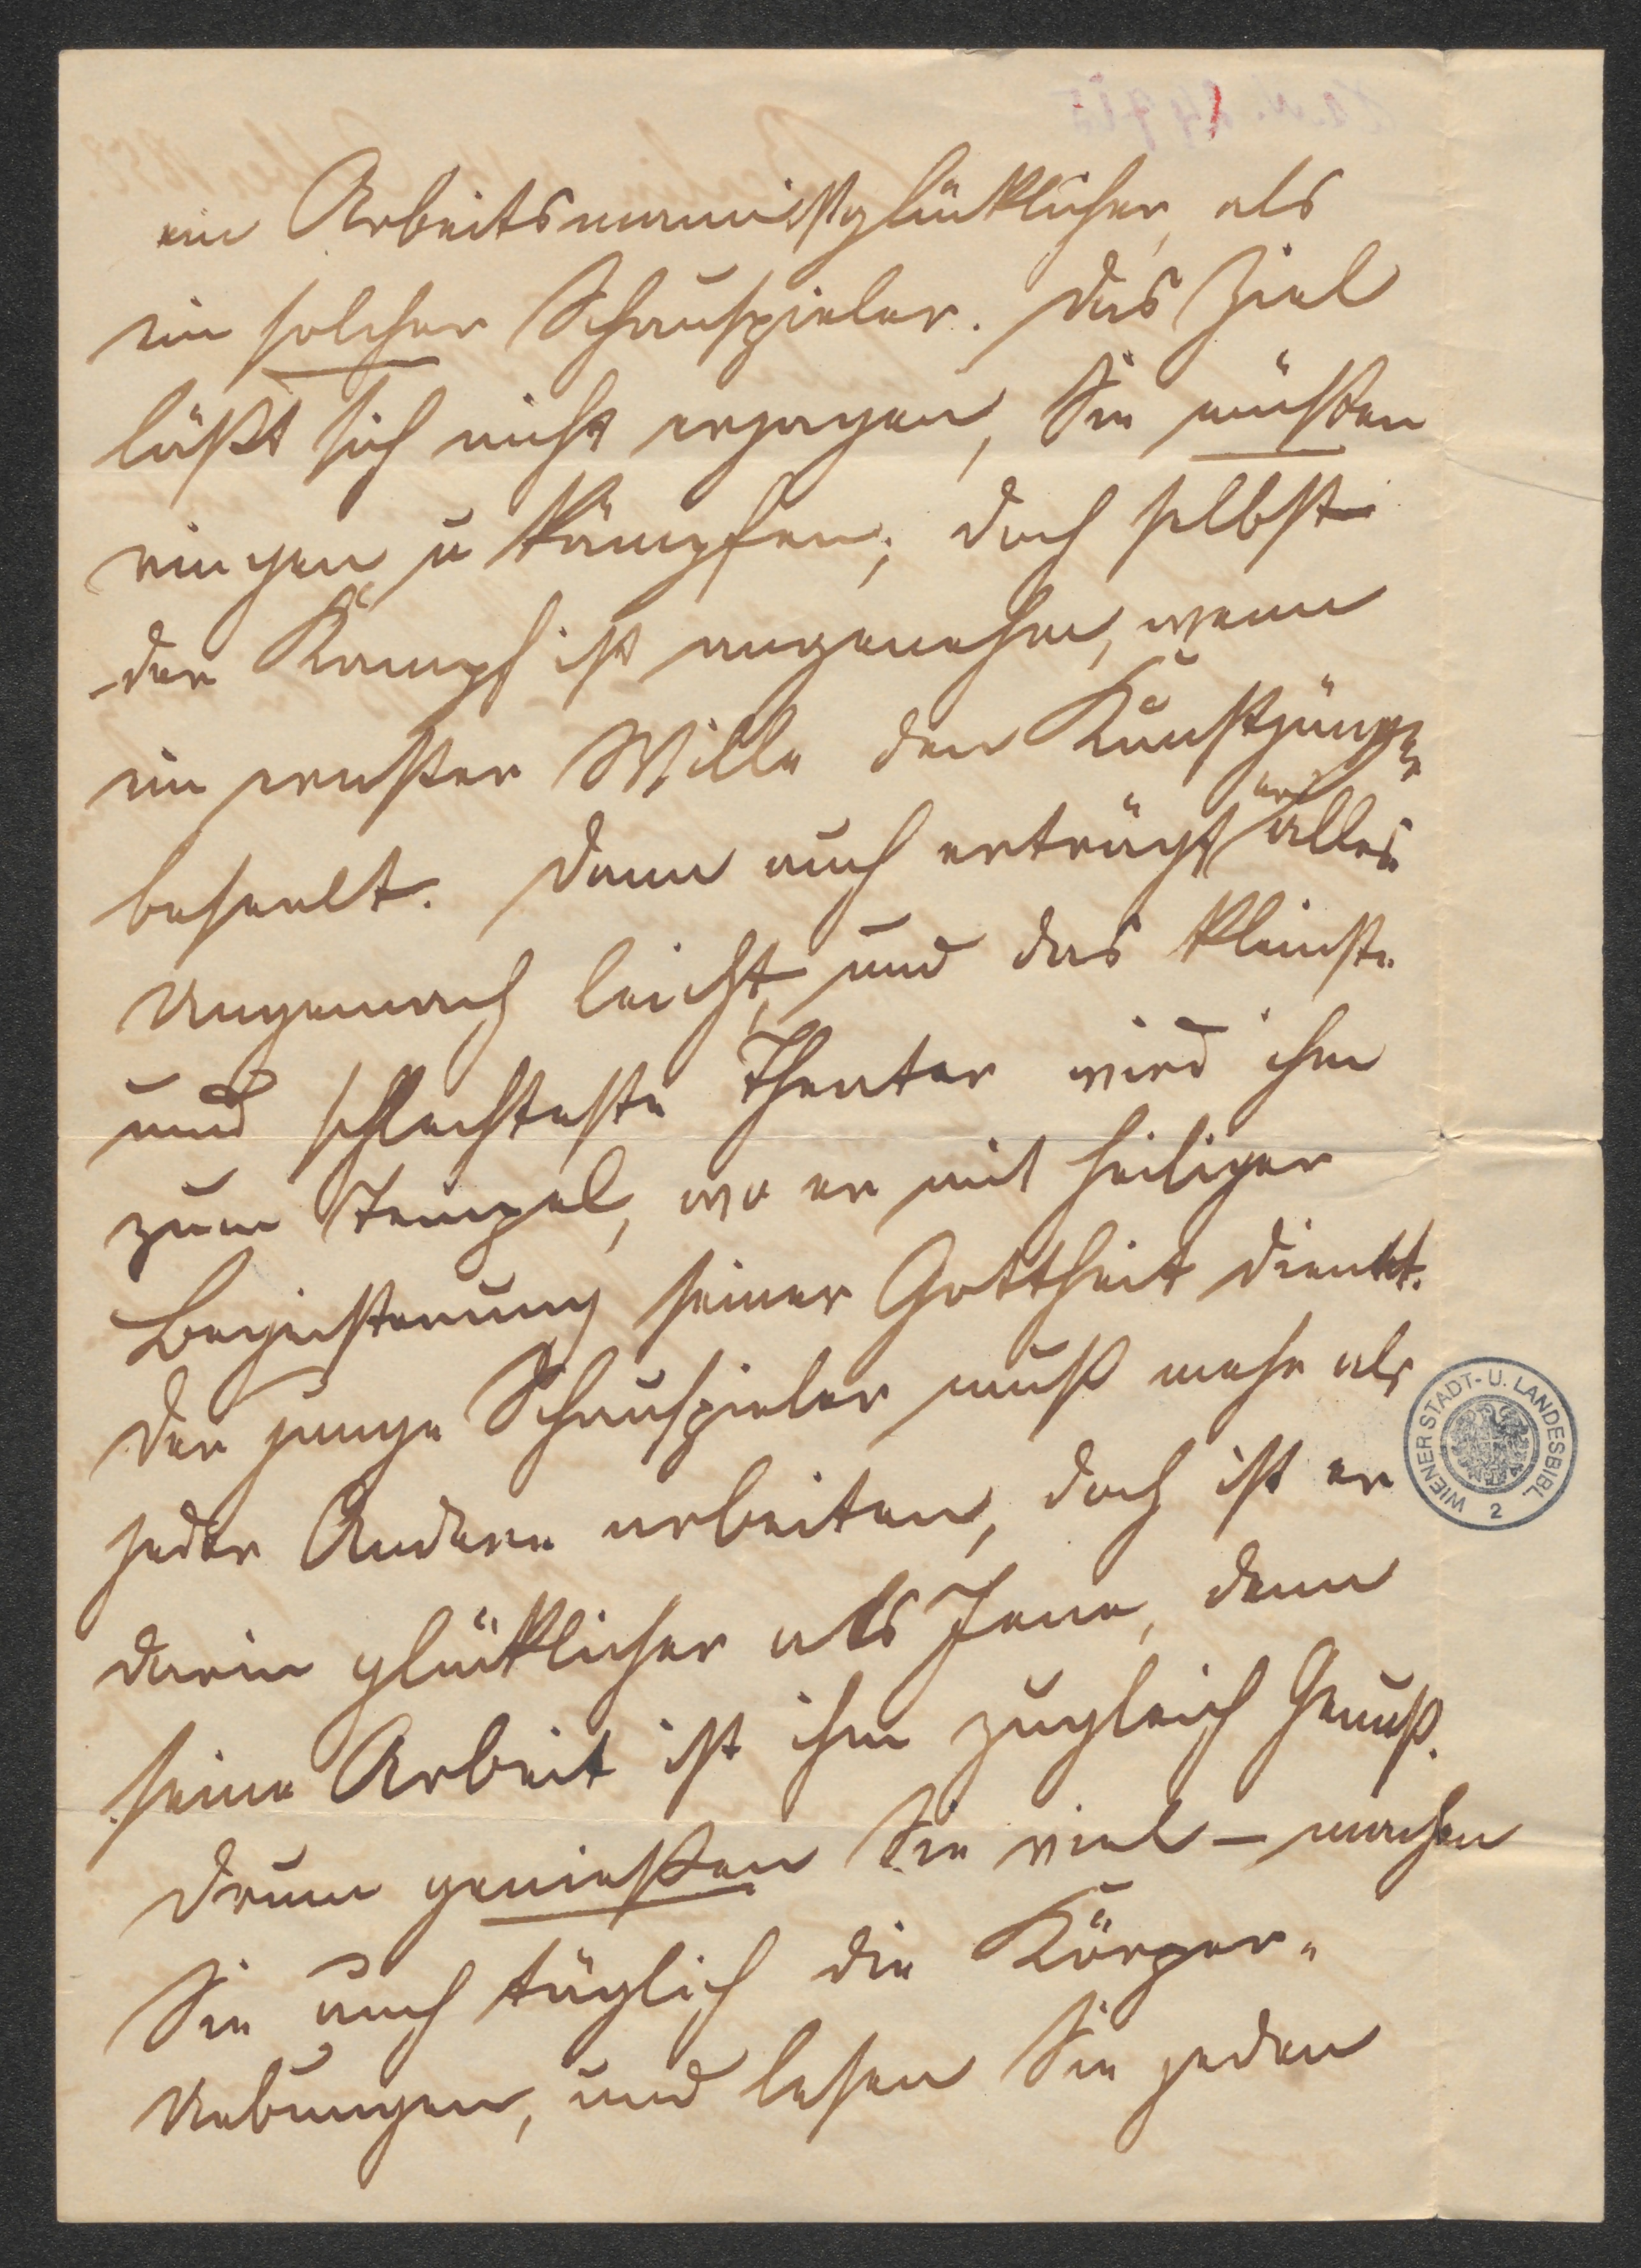 ein Arbeitsmann ist glücklicher, als
ein solcher Schauspieler. Das Ziel
läßt sich nicht erjagen, Sie müßen
ringen u kämpfen; doch selbst
der Kampf ist angenehm, wenn
ein ernster Wille den Kunstjünger
beseelt. Dann auch erträgt er alles
Ungemach leicht, und das kleinste
und schlechteste Theater wird ihm
zum Tempel, wo er mit heiliger
Begeisterung seiner Gottheit dient.
Der junge Schauspieler muß mehr als
jeder Andere arbeiten, doch ist er
darin glücklicher als Jene, denn
seine Arbeit ist ihm zugleich Genuß.
Drum genießen Sie viel – machen
Sie auch täglich die Körper-
Uebungen, und lesen Sie jeden
WIENER STADT- U. LANDESBIBL.
2